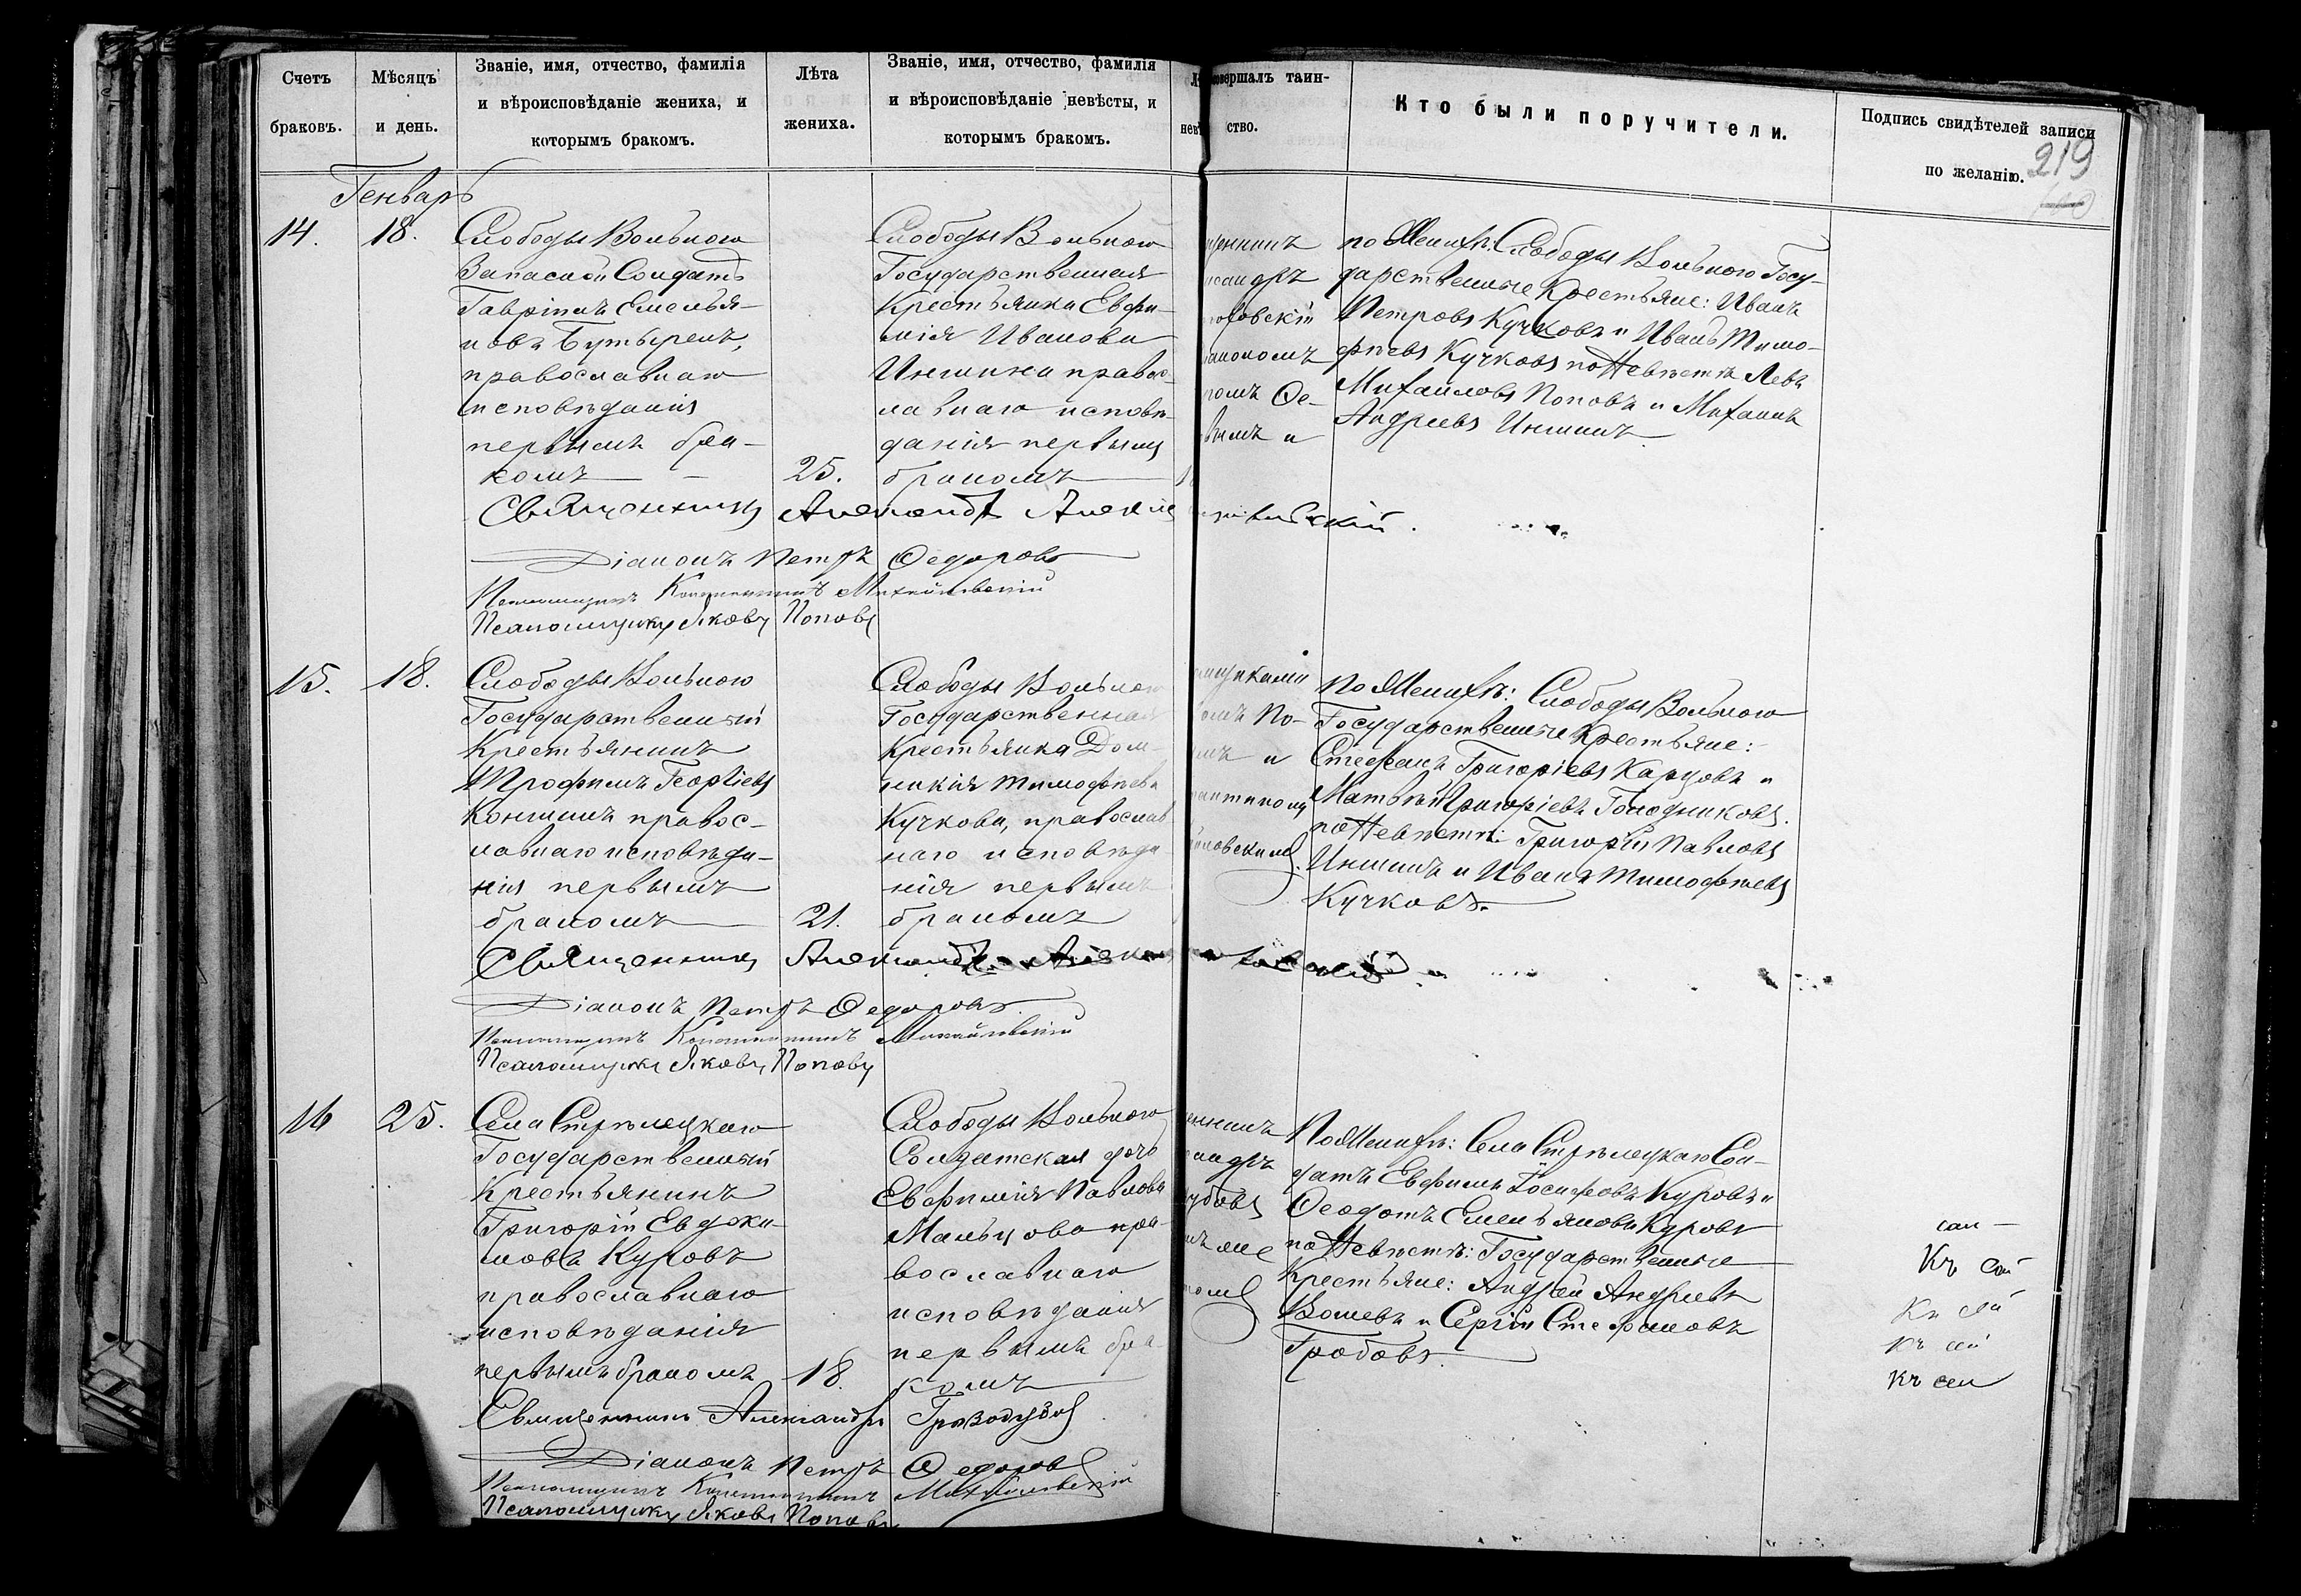 Счетъ
браковъ.
Мѣсяцъ
и день.
Званіе, имя, отчество, фамилія
и вѣроисповѣданіе жениха, и
которымъ бракомъ.
Лѣта
жениха.
Званіе, имя, отчество, фамилія
и вѣроисповѣданіе невѣсты, и
которымъ бракомъ.
совершалъ таин-
ство.
Кто были поручители.
Подпись свидѣтелей записи
по желанію.
219
Генварь
14.
18.
Слободы Вольного
Запасной Солдатъ
Гавріилъ Емелья-
новъ Бутыренъ,
православнаго
исповѣданія
первымъ бра-
комъ
25.
Слободы Вольного
Государственная
Крестьянка Евфи-
мія Иванова
Иншина правос-
лавнаго исповѣ-
данія первымъ
бракомъ
по Женихѣ: Слободы Вольного Госу-
дарственные Крестьяне: Иванъ
Петровъ Кучковъ и Иванъ Тимо-
фѣевъ Кучковъ по Невѣстѣ Левъ
Михайловъ Поповъ и Михаилъ
Андреевъ Иншинъ
Священникъ Александръ
Діаконъ Петръ Федоровъ
Псаломщикъ Константинъ Михайловскій
Псаломщикъ Яковъ Поповъ
15.
18.
Слободы Вольного
Государственный
Крестьянинъ
Трофимъ Георгіевъ
Коншинъ правос-
лавнаго исповѣда-
нія первымъ
бракомъ
21.
Слободы Вольного
Государственная
Крестьянка Дом-
никія Тимофѣева
Кучкова, православ
наго исповѣда
нія первымъ
бракомъ
По Женихѣ: Слободы Вольного
Государственные Крестьяне:
Стефанъ Григоріевъ Карцовъ и
Матвѣй Григоріевъ Голодниковъ.
по Невѣстѣ: Григорій Павловъ
Иншинъ и Иванъ Тимофѣевъ
Кучковъ.
Священникъ Александръ
Діаконъ Петръ Федоровъ
Псаломщикъ Константинъ Михайловскій
Псаломщикъ Яковъ Поповъ
16
25.
Села Стрѣлецкаго
Государственный
Крестьянинъ
Григорій Евдоки-
мовъ Куровъ
православнаго
исповѣданія
первымъ бракомъ
18.
Слободы Вольного
Солдатская дочь
Евфимія Павлова
Мальцова пра-
вославнаго
исповѣданія
первымъ бра
комъ
По Женихѣ: Села Стрѣлецкаго Сол-
датъ Евфимъ Іосифовъ Куровъ и
Феодотъ Емельяновъ Куровъ
по Невѣстѣ: Государственные
Крестьяне: Андрей Андреевъ
Вошевъ и Сергій Стефановъ
Гробовъ.
Священникъ Александръ
Діаконъ Петръ Федоровъ
Псаломщикъ Константинъ Михайловскій
Псаломщикъ Яковъ Поповъ